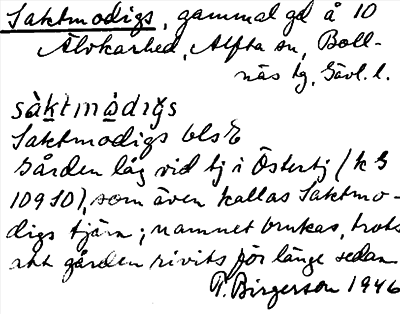 Saktmodigs, gammal gd å 10
Älvkarhed, Alfta sn, Boll-
näs tg, Gävl. l.
sàktmòdigs
Saktmodigs
Gården låg vid tj i Östertj (k G
10910), som även kallas Saktmo-
digs tjärn; namnet brukas, trots
att gården rivits för länge sedan
P. Birgerson 1946